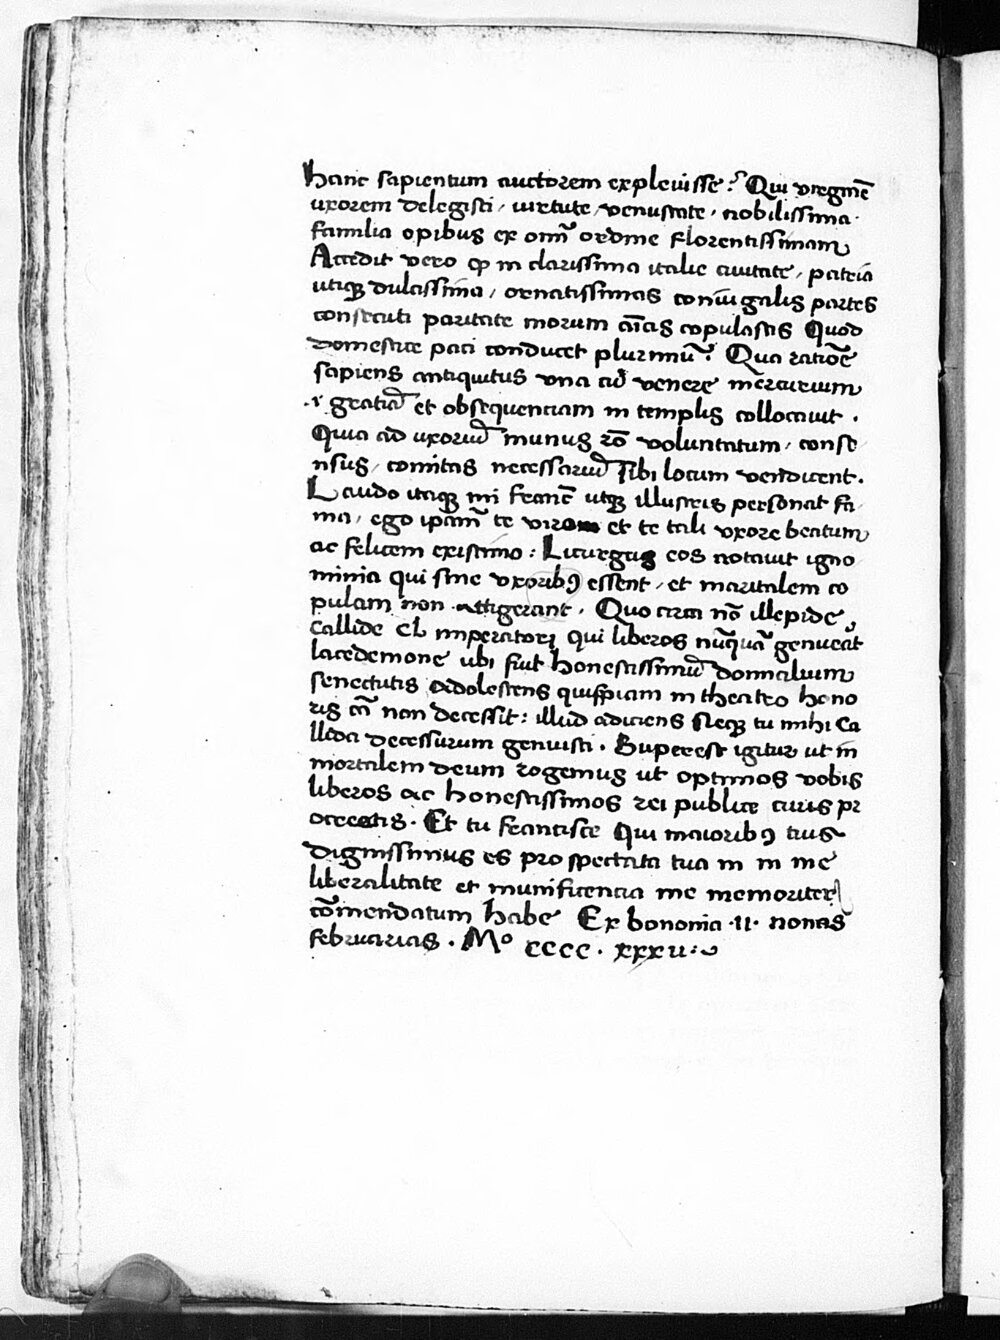 hanc sapientum auctorem explevisse? Qui virginē
uxorem delegisti, virtute, venustate, nobilissima
familia opibus ex omī ordine florentissimam
Accedit vero ꝙ in clarissima italie civitate, patria
utiqꝫ dulcissima, ornatissimas coniugalis partes
consecuti paritate morum aīcis copulastis Quod
domestice paci conducet plurimū. Qua ratiōe
sapiens antiquitus una ad venerē mercurium
gratiā et obsequenciam in templis collocavit.
Quia ad uxoriū munus rō voluntatum, conse
nsus, comitas necessariū sibi locum vendicent.
Laudo itaqꝫ mi franc̄ utqꝫ illustris personat fa
ma, ego ipām te virom et te tali uxore beatum
ac felicem existimo: Liturgus eos notavit igno
minia qui sine uxoribꝯ essent, et maritalem co
pulam non attigerant. Quo circa nō illepide,
callide cl imperatori qui liberos nūquā genuerāt
lacedemone ubi fuit honestissimū domicilium
senectutis adolescens quispiam in theatro hono
ris cā non decessit: illud adiciens Neqꝫ tu mihi ca
lleda decessurum genuisti. Superest igitur ut in
mortalem deum rogemus ut optimos vobis
liberos ac honestissimos rei publice cives pr
ocreetis. Et tu francisce Qui maioribꝯ tuis
dignissimus es pro spectata tua in in me
liberalitate et munificencia me memoriter
cōmendatum habe Ex bononia .II. nonas
februarias. Mº cccc. xxxii: